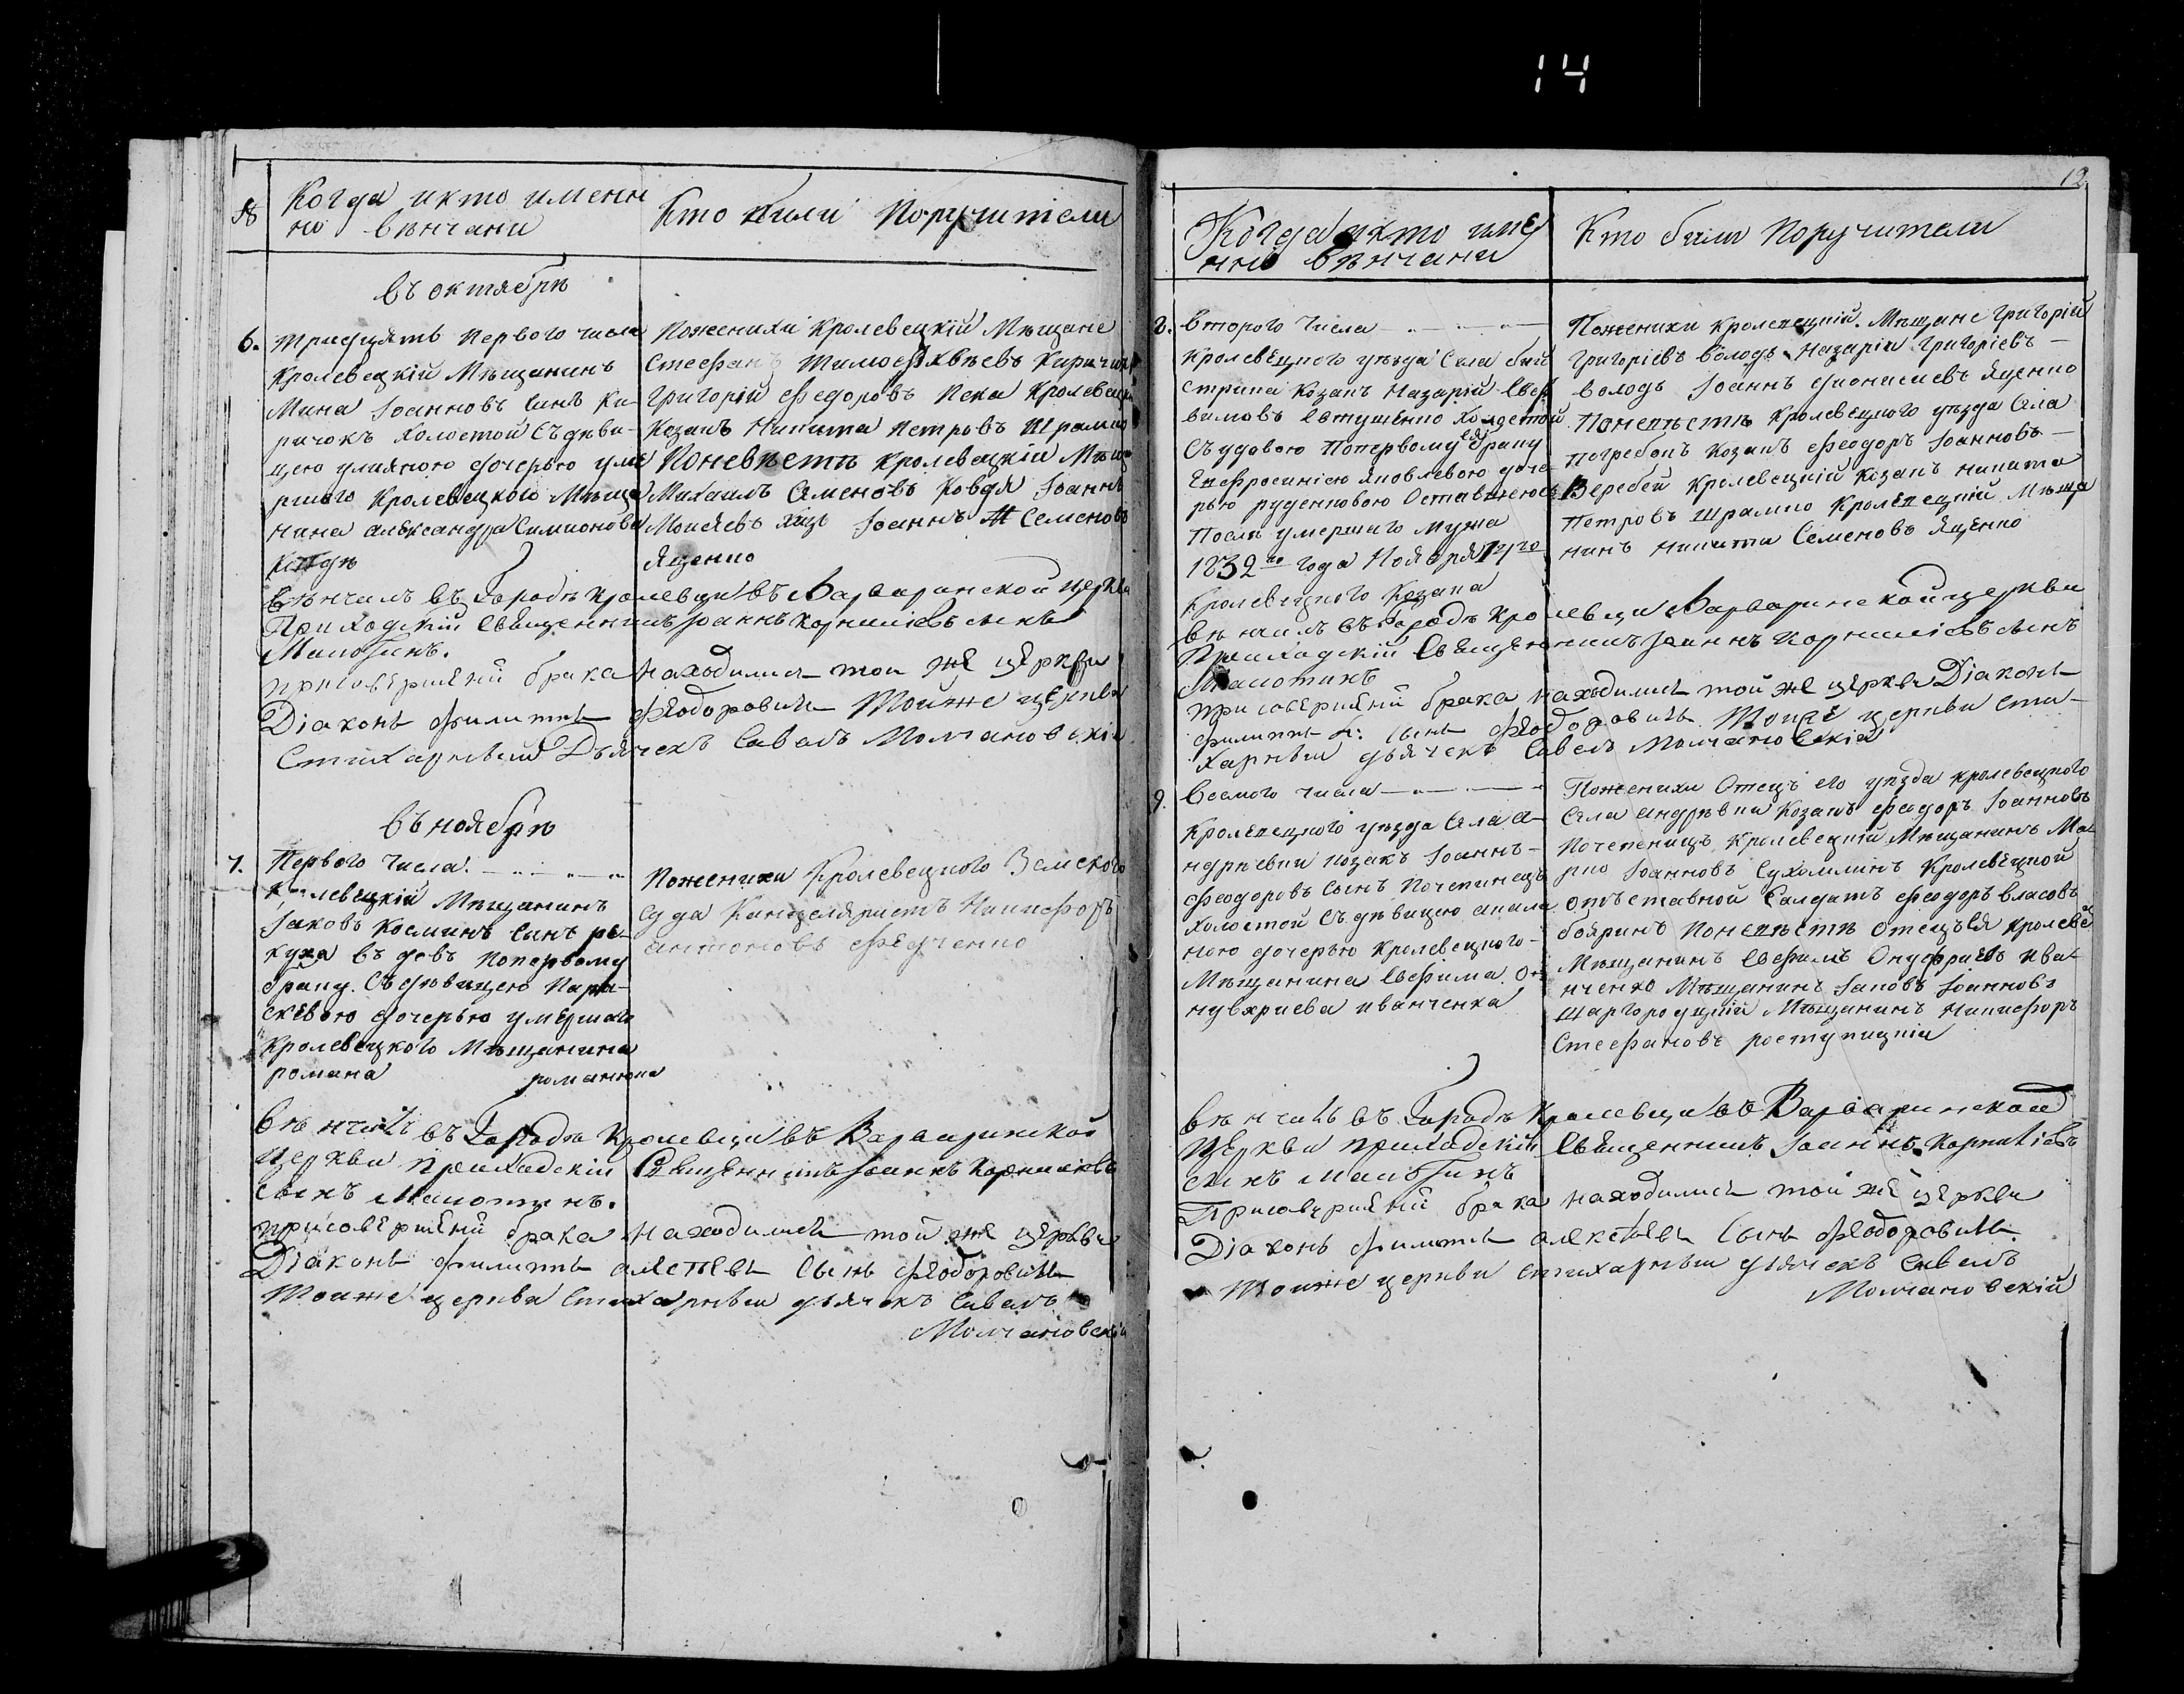 14
12
№
Когда и кто именн
но вѣнчани
Кто били Поручители
въ октябрѣ
6. тридцять Первого числа
Кролевецкій Мѣщанинъ
Мина Іоанновъ синъ Ки-
ричокъ Холостой Съ дѣви-
цею улияною дочерью уме
ршого Кролевецкого Мѣща
нина александра Симионова
Поженихи Кролевецкій Мѣщане
Стефанъ Тимофѣевъ
Григорій Федоровъ Пека Кролевецкій
Козакъ Никита Петровъ Шрамко
Поневѣстѣ Кролевецкій Мѣща
Михаилъ Семеновъ Ковдя Іоаннъ
Моисѣевъ Іоаннъ Семеновъ
Яценко
Вѣнчалъ въ Городѣ Кролевци въ Варваринской церкви
Приходскій Священникъ Іоаннъ Корниліевъ сынъ
Малютинъ.
при совершеній брака находились той же церкви
Діаконъ Филиппъ Ѳеодоровичь Тоиже церкви
Стихарный Дьячекъ Савелъ Молчановскій
въ ноябрѣ
7. Первого Числа.
Кролевецкій Мѣщанинъ
Іаковъ Косминъ синъ ре-
куха въ довъ Попервому
браку. Съ дѣвицею Пара-
скевою дочерью умершаго
Кролевецкого Мѣщанина
романа романюка
Поженихи Кролевецкого Земского
суда Канцеляристъ Никифоръ
антоновъ Федченко
Вѣнчалъ въ Городѣ Кролевци въ Варваринской
Церкви Приходскій Священникъ Іоаннъ Корниліевъ
сынъ Малютинъ.
при совершеній брака находились той же церкви
Діаконъ Филиппъ алексѣевъ сынъ Ѳеодоровичь
Тоиже церкви Стихарный дьячекъ Савелъ
Молчановскій
Когда и кто име
нно вѣнчани
Кто били Поручители
8. Второго Числа
Кролевецкого уѣзда Села бий
стрика Козакъ Назарій Евфи
мовъ Евтушенко Холостой
Съ удовою Попервому браку
Евфросиніею Яковлевою доче
рью руденковою Оставшеюсь
Послѣ умершаго Мужа
1832го года Ноября
Кролевецкого Козака
Поженихи Кролевецкій Мѣщане Григорій
Григоріевъ володь Назарій Григоріевъ
володь Іоаннъ Дионисиевъ Яценко
Поневѣстѣ Кролевецкого уѣзда Села
Погребокъ Козакъ Феодоръ Іоанновъ
Веребей Кролевецкій Козакъ Никита
Петровъ Шрамко Кролевецкій Мѣща
нинъ Никита Семеновъ Яценко
Вѣнчалъ въ Городѣ Кролевци Варваринской церкви
Приходскій Священникъ Іоаннъ Корниліевъ сынъ
Малютинъ
при совершеній брака находились той же церкви Діаконъ
Филиппъ А: сынъ Ѳеодоровичь. Тоиже церкви Сти-
харный дьячекъ Савелъ Молчановскій
9. Восмого числа
Кролевецкого уѣзда Села а-
ндрѣевки козакъ Іоаннъ
Феодоровъ Сынъ Почепинецъ
Холостой Съ дѣвицею акили
ною дочерью Кролевецкого
Мѣщанина Евфима О-
нуфриева иванченка
Поженихи Отецъ его уѣзда Кролевецкого
Села андрѣвки Козакъ Феодоръ Іоанновъ
Почепенецъ Кролевецкій Мѣщанинъ Ма-
рко Іоанновъ Сухомлинъ Кролевецкой
отъставной Салдатъ Феодоръ власовъ
бояринъ Поневѣстѣ Отецъ Ея Кролеве
Мѣщанинъ Евфимъ Онуфриевъ Ива
нченко Мѣщанинъ Іаковъ Іоанновъ
Шаргородцкій Мѣщанинъ Никифоръ
Стефановъ
Вѣнчалъ въ Городѣ Кролевци въ Варваринской
Церкви Приходскій Священникъ Іоаннъ Корниліевъ
сынъ Малютинъ
При совершеній брака находились той же церкви
Діаконъ Филиппъ алексѣевъ сынъ Ѳеодоровичь.
Тоиже церкви стихарный дьячекъ Савелъ
Молчановскій